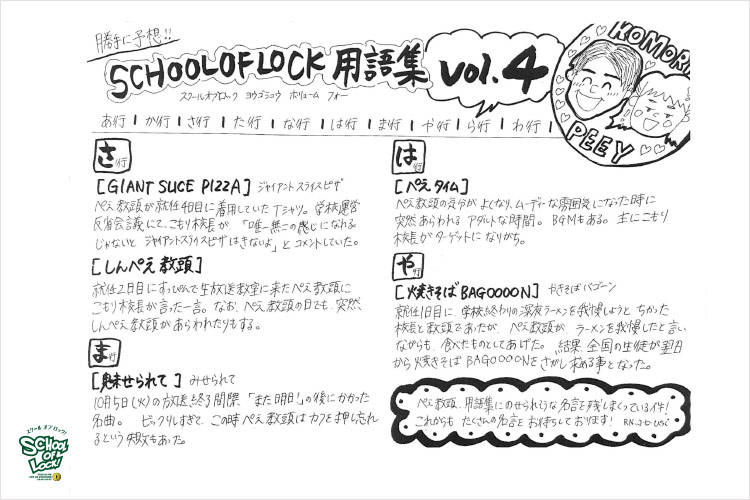 勝手に予想!!
SCHOOL OF LOCK 用語集 vol.4
スクールオブロック ヨウゴシュウ ボリューム フォー
KOMORI
PEEY
あ行 | か行 | さ行 | た行 | な行 | は行 | ま行 | や行 | ら行 | わ行 |
さ行
[GIANT SLICE PIZZA] ジャイアントスライスピザ
ぺえ教頭が就任4日目に着用していたTシャツ。学校運営
反省会議にて、こもり校長が「唯一無二の感じになれる
じゃないと ジャイアントスライスピザはきないよ」とコメントしていた。
[しんぺえ教頭]
就任2日目にすっぴんで生放送教室に来たぺえ教頭に
こもり校長が言った一言。なお、ぺえ教頭の日でも、突然、
しんぺえ教頭があらわれたりもする。
ま行
[魅せられて] みせられて
10月5日(火)の放送終了間際「また明日!」の後にかかった
名曲。ビックリしすぎて、この時ぺえ教頭はカフを押し忘れ
るという失敗もあった。
は行
[ぺえタイム]
ぺえ教頭の気分がよくなり、ムーディーな雰囲気になった時に
突然あらわれるアダルトな時間。BGMもある。主にこもり
校長がターゲットになりがち。
や行
[焼きそばBAGOOOON] やきそばバゴーン
就任1日目に、学校終わりの深夜ラーメンを我慢しようとちかった
校長と教頭であったが、ぺえ教頭がラーメンを我慢したと言い
ながらも、食べたものとしてあげた。結果、全国の生徒が翌日
から焼きそばBAGOOOONをさがし求める事となった。
ぺえ教頭、用語集にのせられそうな名言を残しまくっている件!
これからもたくさんの名言をお待ちしております! RN.
スクールオブロック!
SCHOOL OF LOCK!